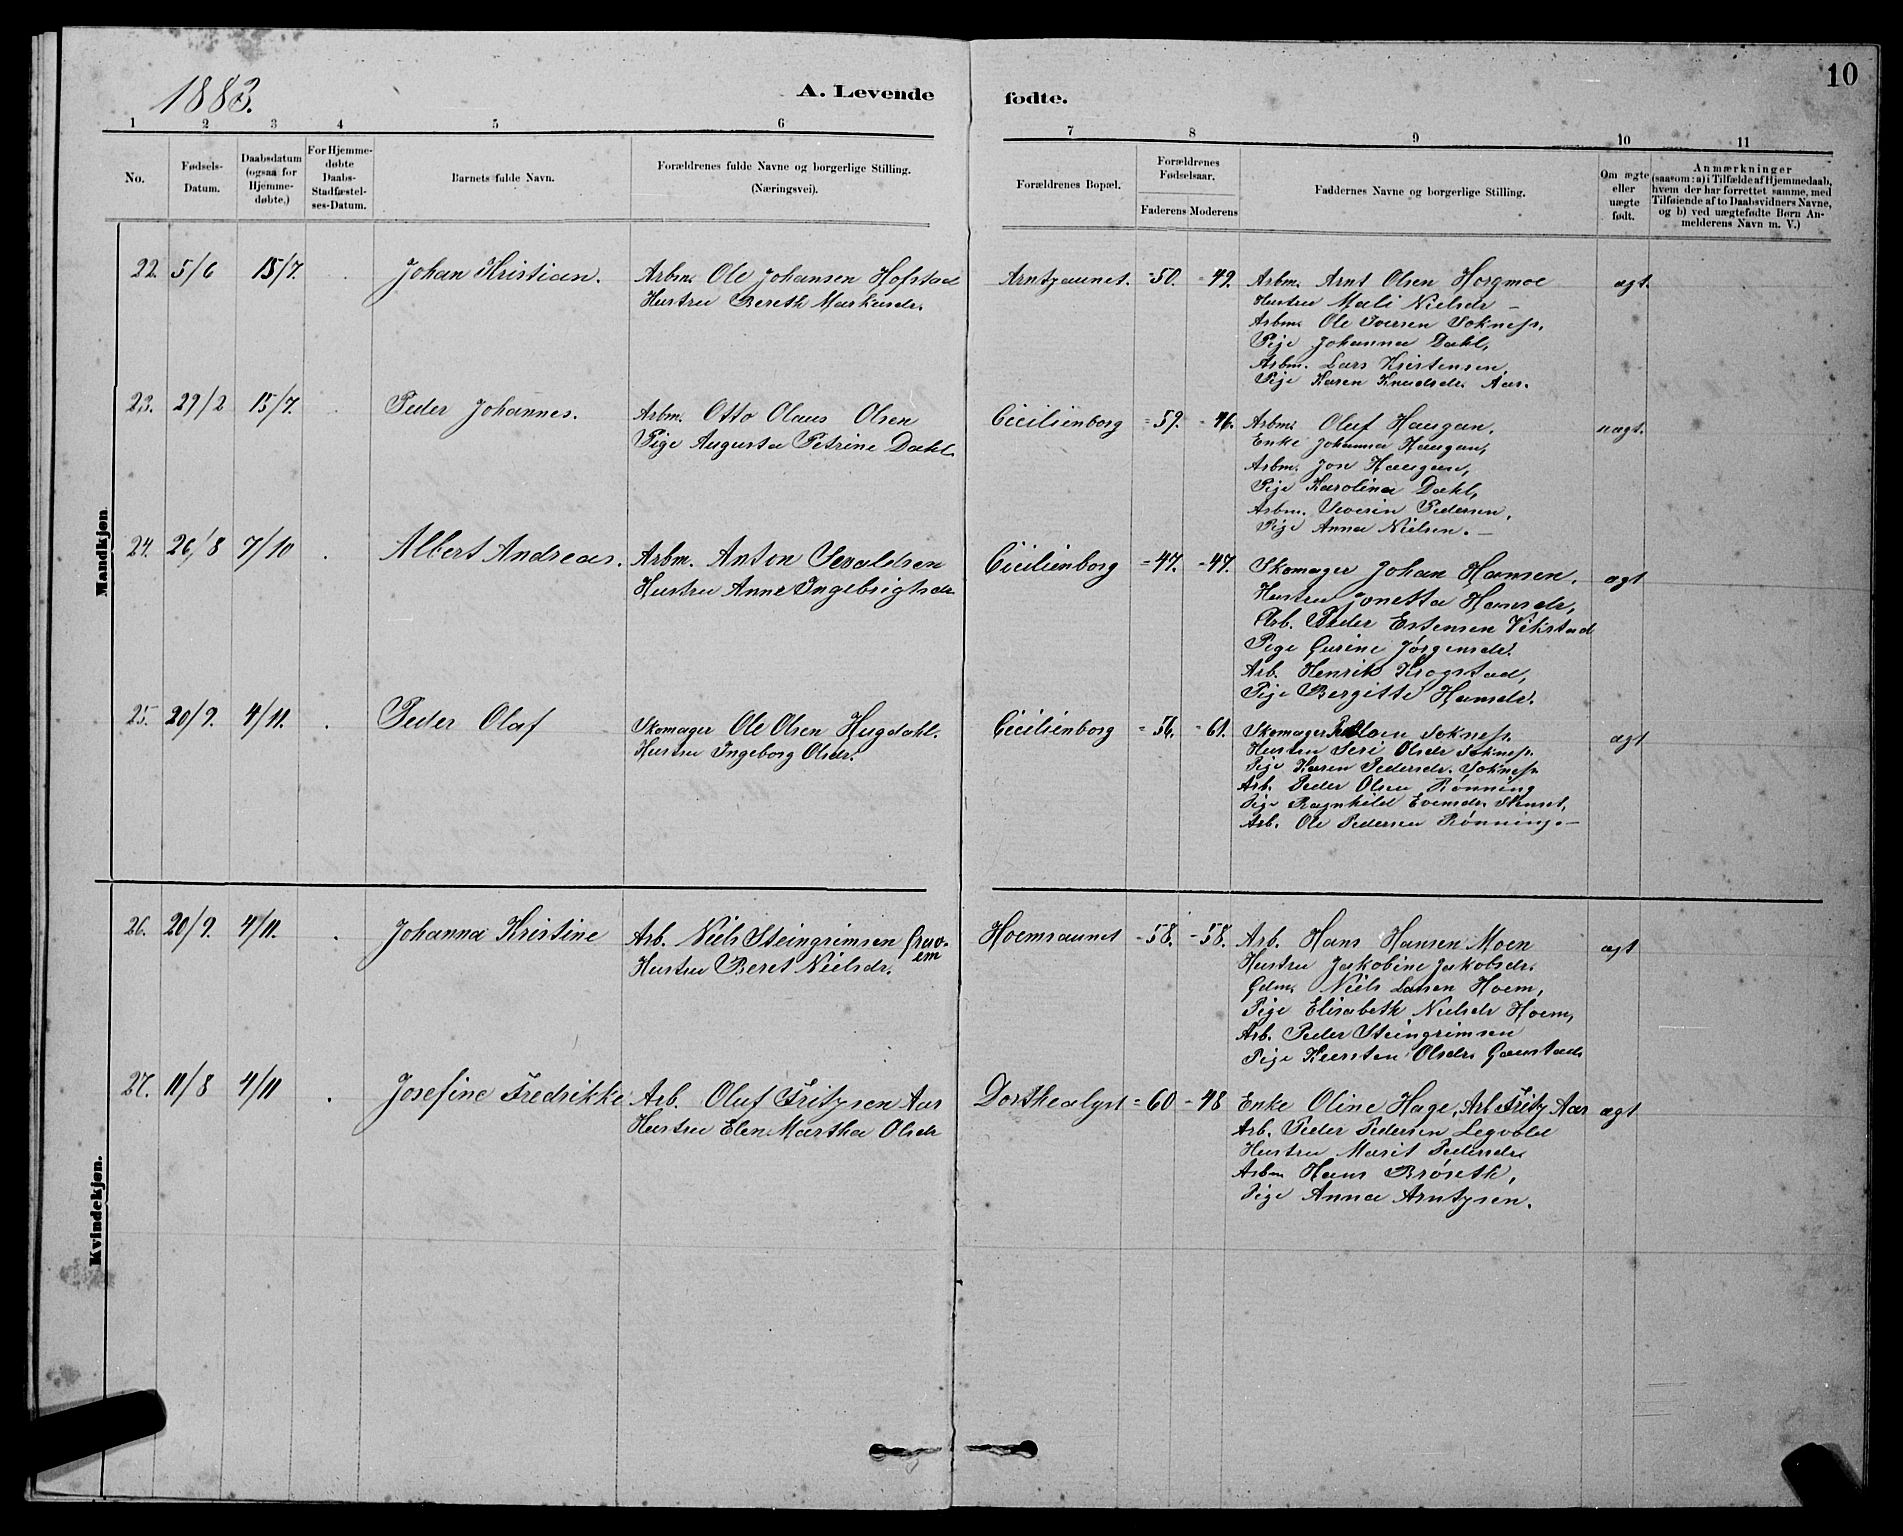 10
1883.
A. Levende fødte.
1 2 3 4 5 6 7 8 9 10 11
No.
Fødsels-Datum.
Daabsdatum (ogsaa for Hjemme-døbte.)
For Hjemme-døbte Daabs-Stadfæstel-ses-Datum.
Barnets fulde Navn.
Forældrenes fulde Navne og borgerlige Stilling.
(Næringsvei).
Forældrenes Bopæl.
Forældrenes Fødselsaar.
Faderens Moderens
Faddernes Navne og borgerlige Stilling.
Om ægte eller uægte født.
Anmærkninger
(saasom: a) i Tilfælde af Hjemmedaab,
hvem der har forrettet samme, med
Tilføiende af to Daabsvidners Navne,
og b) ved uægtefødte Børn An-
melderens Navn m. V.)
Mandkjøn.
22. 5/6 15/7. Johan Kristian. Arbm. Ole Johansen Hofstad Arntzaunet. =50. =49. Arbm. Arnt Olsen Horgmoe ægt.
Hustru Bereth Markusdr. Hustru Mali Nielsdr —
Arbm. Ole Iversen Sokness.
Pige Johanna Dahl,
Arbm. Lars Kristensen
Pige Karen Knudsdr. Aar.
23. 29/2 15/7. Peder Johannes. Arbm. Otto Olaus Olsen Cicilienborg =59. =46. Arbm. Oluf Haugan. uægt.
Pige Augusta Petrine Dahl. Enke Johanna Haugan,
Arbm. Jon Haugan,
Pige Karolina Dahl,
Arbm. Severin Pedersen,
Pige Anna Nielsen. —
24. 26/8 7/10 Albert Andreas. Arbm. Anton Sevaldsen Cicilienborg =47. =47. Skomager Johan Hansen. ægt
Hustru Anne Ingebrigtsdr Hustru Jonetta Hansdr,
Arb. Peder Estensen Vikstad
Pige Gurine Jørgensdr.
Arb. Henrik Krogstad,
Pige Bergitte Hansdr.
25. 20/9. 4/11. Peder Olaf Skomager Ole Olsen Hugdahl. Cicilienborg =56. =61. Skomager Sokness. ægt
Hustru Ingeborg Olsdr. Hustru Seri Olsdr Sokness.
Pige Karen Pedersdr. Sokness
Arb. Peder Olsen Rønning
Pige Ragnhild Evensdr
Arb. Ole Pedersen Rønning. —
Kvindekjøn.
26. 20/9. 4/11. Johanna Kristine Arb. Niels Steingrimsen Gravem Hoemsaunet =58. =58. Arb. Hans Hansen Moen ægt
Hustru Beret Nielsdr. Hustru Jakobine Jakobsdr.
Gdm. Niels Larsen Hoem,
Pige Elisabeth Nielsdr Hoem,
Arb. Peder Steingrimsen
Pige Kiersten Olsdr. Gaustad.
27. 11/8 4/11 Josefine Fredrikke Arb. Oluf Fritzsen Aar Dorthealyst =60 =48 Enke Oline Hage, Arb. Fritz Aar ægt
Hustru Elen Martha Olsdr Arb. Peder Pedersen Legvold
Hustru Marit Pedersdr.
Arbm Hans Brøseth,
Pige Anna Arntzsen.